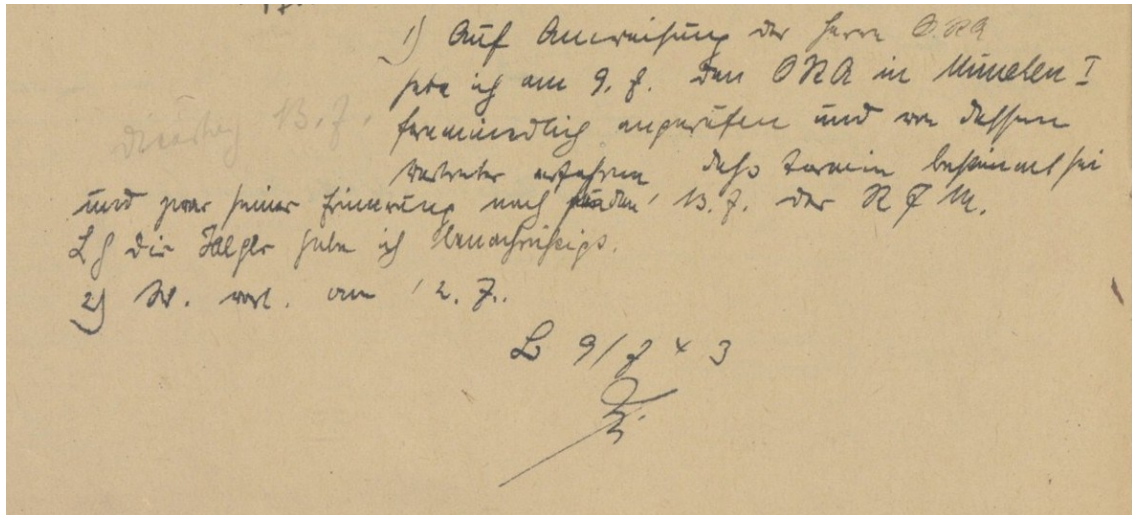 1) Auf Anweisung des Herrn ORA
habe ich am 9. 7. den ORA in München I
Dienstag 13. 7.
fernmündlich angerufen und von dessen
Vertreter erfahren, daß Termin bestimmt sei
und zwar seiner Erinnerung nach für den 13. 7. Das RJM.
habe ich benachrichtigt.
2) W. vorl. am 12. 7.
B 9/7 43